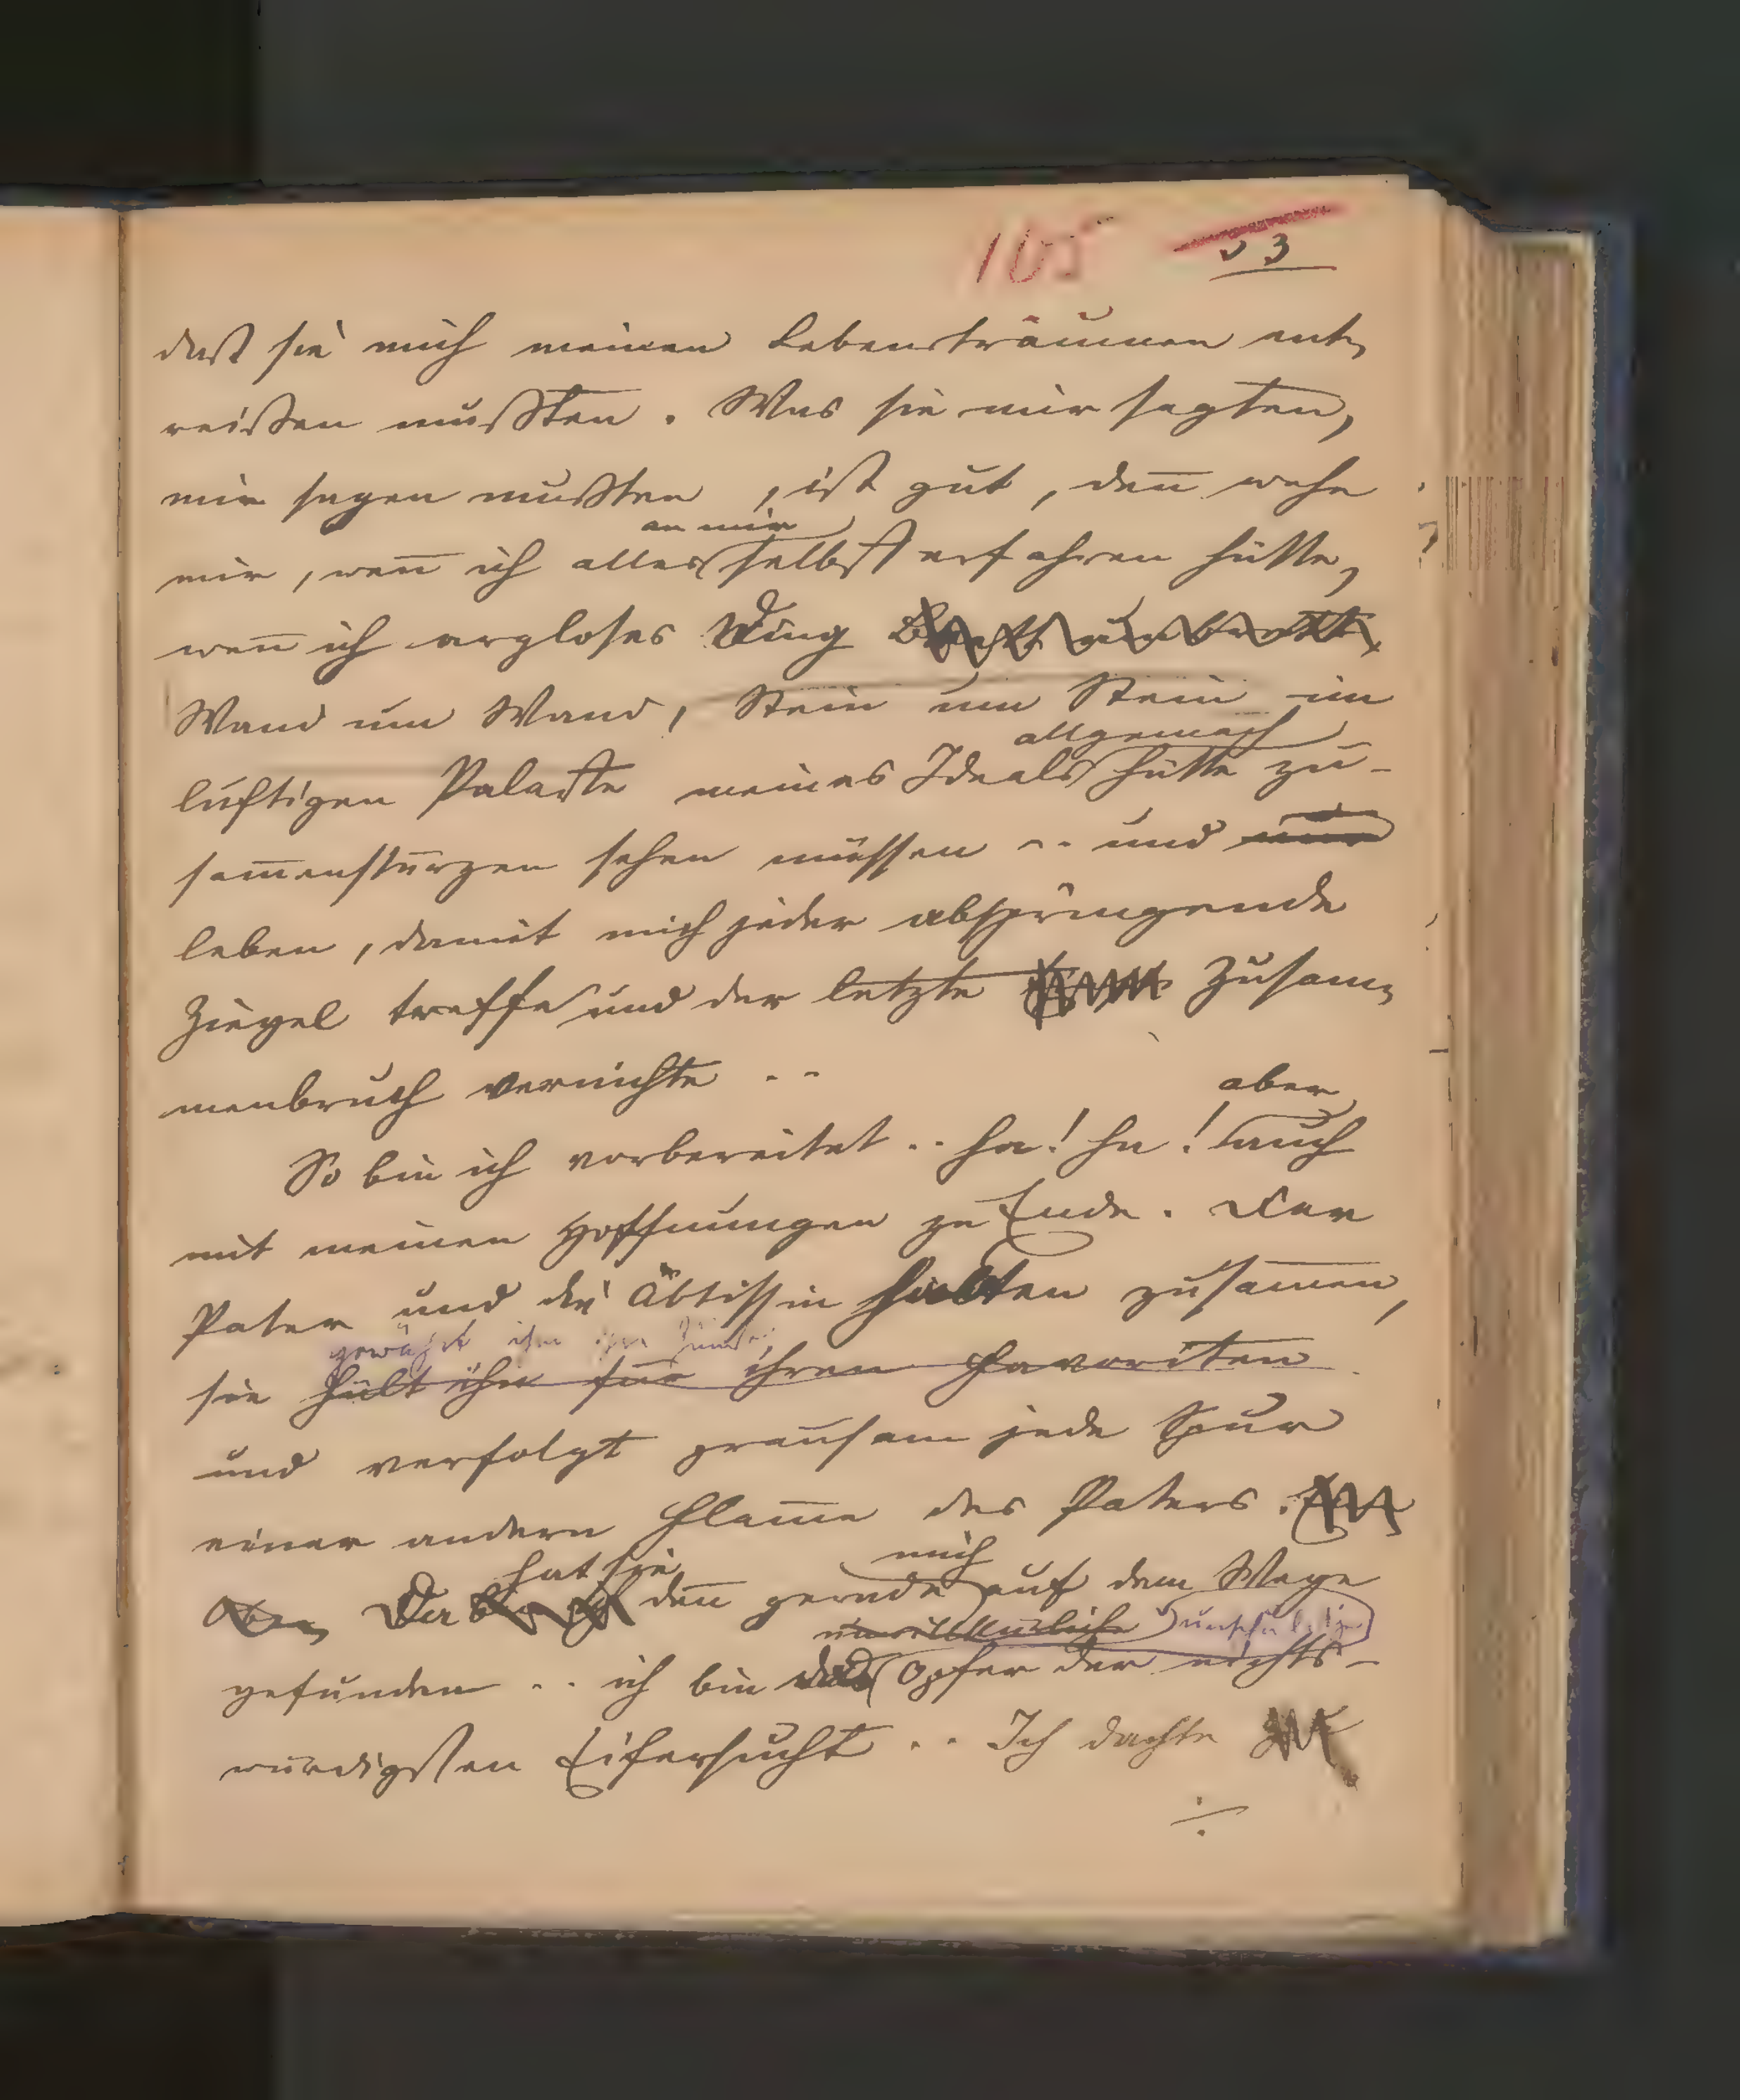 105 53
daß sie mich meinen Lebensträumen ent-
reißen mußten. Was sie mir sagten,
mir sagen mußten, ist gut, den̅ wehe
an mir
mir, wen̅ ich alles selbst erfahren hätte,
wen̅ ich argloses Ding
Wand um Wand, Stein um Stein im
allgemach
luftigen Palaste meines Ideals hätte zu-
sam̅enstürzen sehen müssen .. und nur
leben, damit mich jeder abspringende
Ziegel treffe und der letzte Zusam-
menbruch vernichte ..
aber
So bin ich vorbereitet .. ha! ha! auch
mit meinen Hoffnungen zu Ende. Der
Pater und die Äbtissin halten zusam̅en,
gewährt ihm
sie hält ihn für ihren Favoriten
und verfolgt grausam jede Spur
einer andern Flam̅e des Paters.
hat sie mich
Aber Da bin ich den̅ gerade auf dem Wege
unwillkürliche unschuldige
gefunden .. ich bin das Opfer der nichts-
würdigsten Eifersucht .. Ich dachte